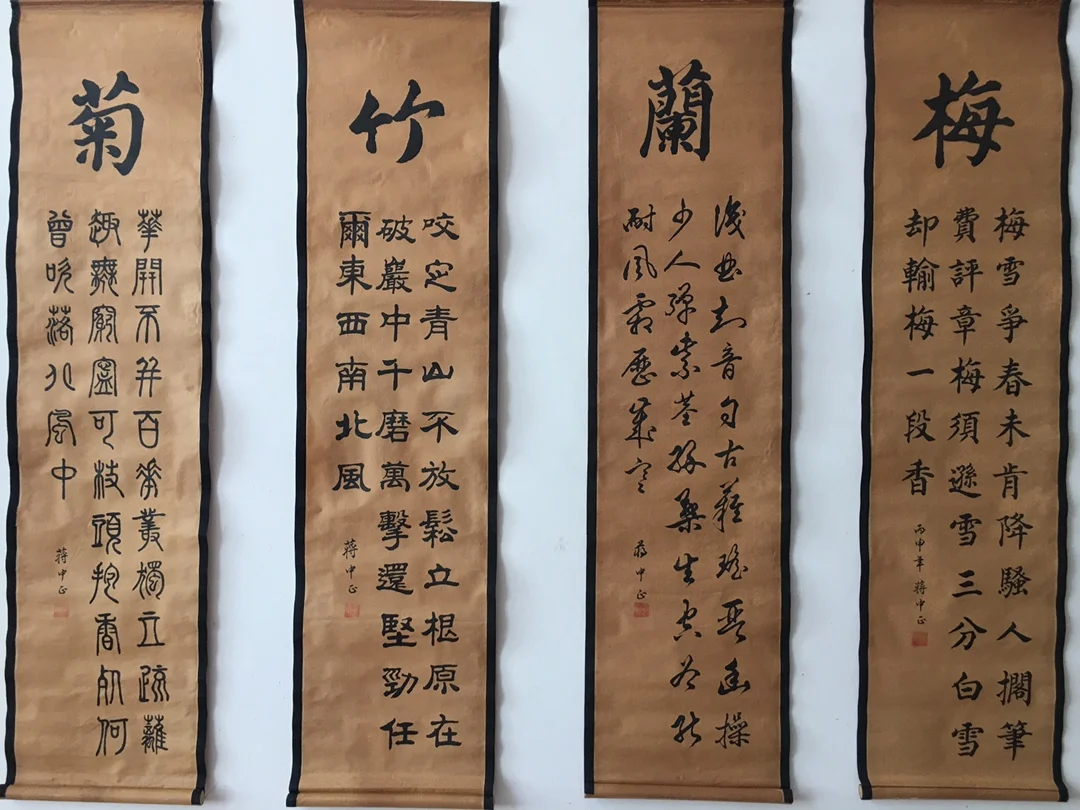 梅
梅雪爭春未肯降騷人擱筆
費評章梅須遜雪三分白雪
却輸梅一段香
丙申年 蔣中正
蘭
曲知音自古難瑤琴幽操
少人彈紫莖綠葉生空谷能
耐風霜歷歲寒
蔣中正
竹
咬定青山不放鬆立根原在
破巖中千磨萬擊還堅勁任
爾東西南北風
蔣中正
菊
華開不并百花叢獨立疏籬
趣無窮寧可枝頭抱香死何
曾吹落北風中
蔣中正